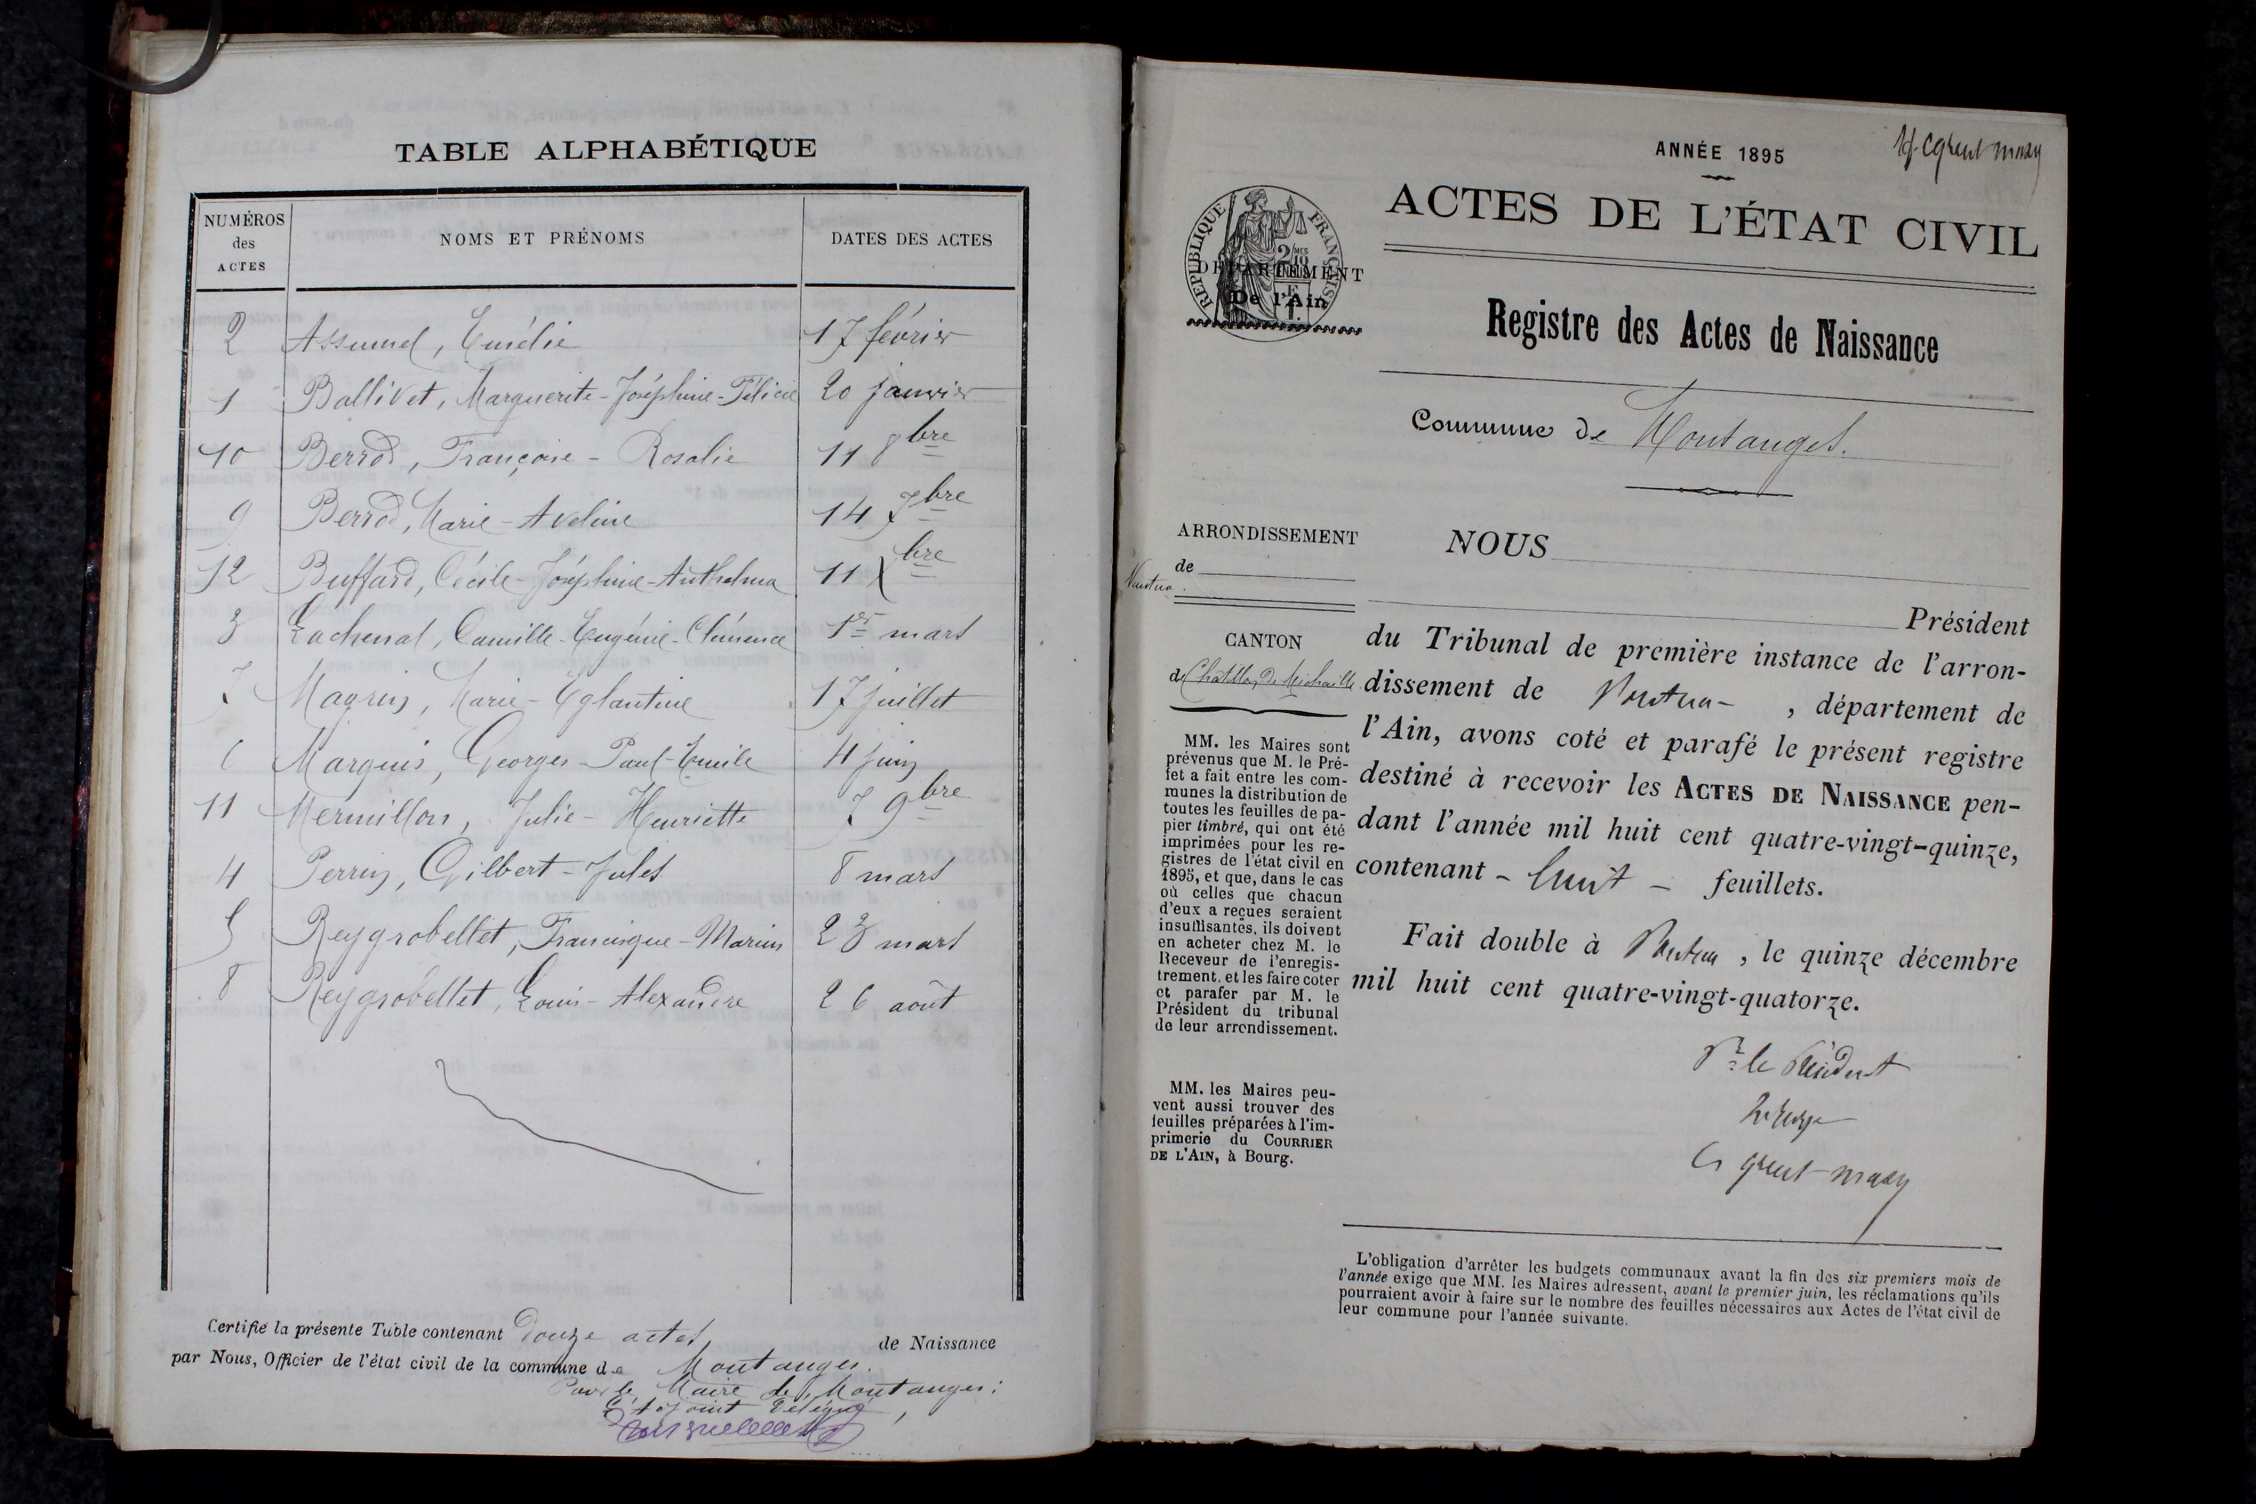 TABLE ALPHABÉTIQUE
NUMÉROS des ACTES
NOMS ET PRÉNOMS
DATES DES ACTES
2 Assumel, Emélie 17 février
1 Ballivet, Marguerite-Joséphine-Félicie 20 janvier
10 Berrod, Françoise-Rosalie 11 8bre
9 Berrod, Marie-Aveline 14 7bre
12 Buffard, Cécile-Joséphine-Anthelma 11 Xbre
3 Lachenal, Camille-Eugénie-Clémence 1er mars
7 Magnin, Marie-Eglantine 17 juillet
6 Marquis, Georges-Paul-Emile 4 juin
11 Mermillon, Julie-Henriette 7 9bre
4 Perrin, Gilbert-Jules 8 mars
5 Reygrobellet, Francisque-Marius 23 mars
8 Reygrobellet, Louis-Alexandre 26 août
Certifié la présente Table contenant douze actes de Naissance
par Nous, Officier de l'état civil de la commune de Montanges.
Pour le Maire de Montanges:
L'Adjoint délégué,
ANNÉE 1895
ACTES DE L'ÉTAT CIVIL
RÉPUBLIQUE FRANÇAISE
DÉPARTEMENT
De l'Ain
Registre des Actes de Naissance
Commune de Montanges.
ARRONDISSEMENT
de
Nantua
CANTON
de Châtillon de Michaille
MM. les Maires sont
prévenus que M. le Pré-
fet a fait entre les com-
munes la distribution de
toutes les feuilles de pa-
pier timbré, qui ont été
imprimées pour les re-
gistres de l'état civil en
1895, et que, dans le cas
où celles que chacun
d'eux a reçues seraient
insuffisantes, ils doivent
en acheter chez M. le
Receveur de l'enregis-
trement, et les faire coter
et parafer par M. le
Président du tribunal
de leur arrondissement.
MM. les Maires peu-
vent aussi trouver des
feuilles préparées à l'im-
primerie du COURRIER
DE L'AIN, à Bourg.
NOUS
Président
du Tribunal de première instance de l'arron-
dissement de Nantua, département de
l'Ain, avons coté et parafé le présent registre
destiné à recevoir les ACTES DE NAISSANCE pen-
dant l'année mil huit cent quatre-vingt-quinze,
contenant - huit - feuillets.
Fait double à Nantua, le quinze décembre
mil huit cent quatre-vingt-quatorze.
Pr le Président
L'obligation d'arrêter les budgets communaux avant la fin des six premiers mois de
l'année exige que MM. les Maires adressent, avant le premier juin, les réclamations qu'ils
pourraient avoir à faire sur le nombre des feuilles nécessaires aux Actes de l'état civil de
leur commune pour l'année suivante.